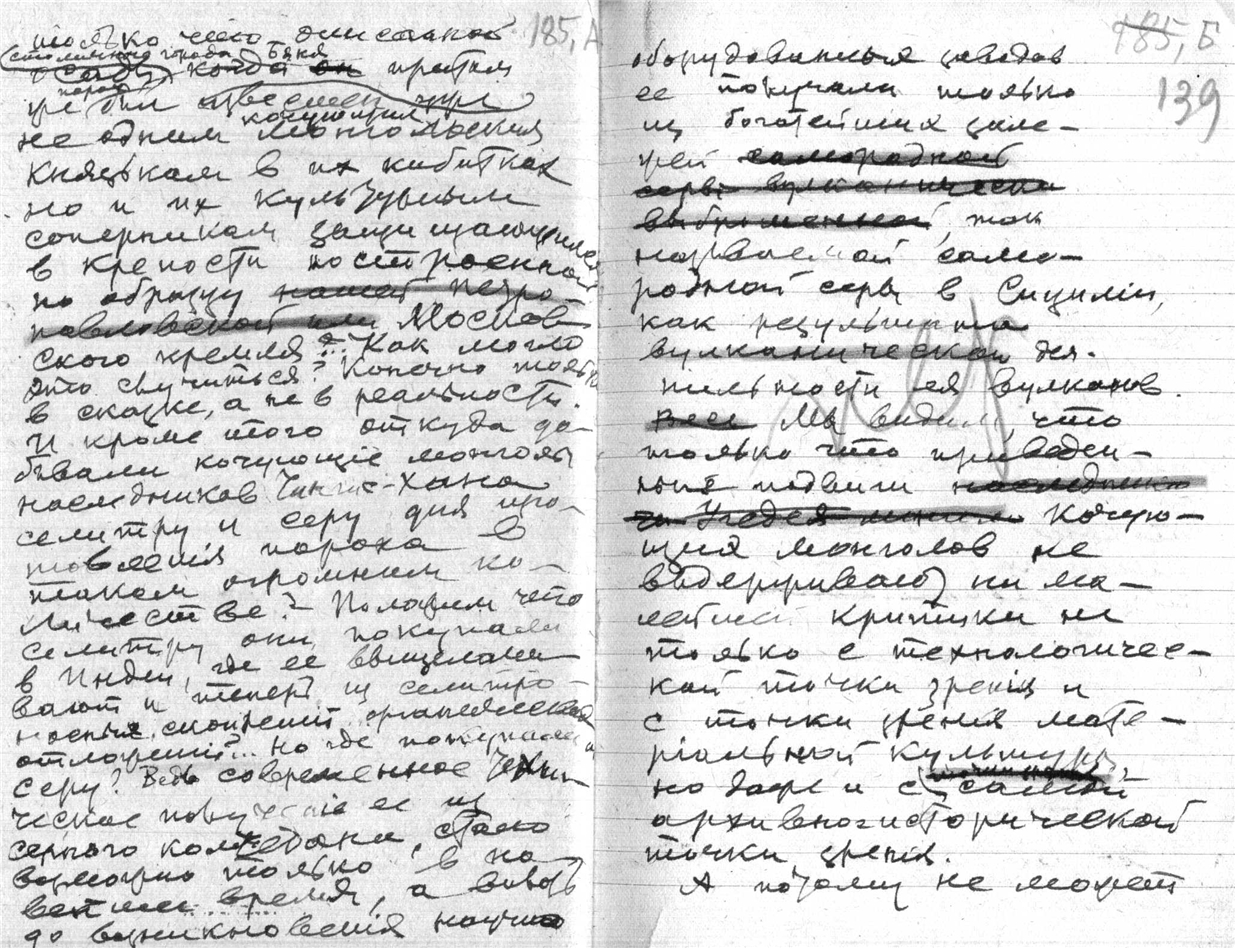 185, А
только что описаной
столичные города Бяня
когда он притом
порох
был известен уже
кочующим
не одним монгольским
князькам в их кибитках
но и их культурным
соперникам защищающимся
в крепости построенной
по образцу нашей петро-
павловской или Москов
ского кремля?... Как могло
это случиться? Конечно только
в сказке, а не в реальности.
И кроме того откуда до-
бывали кочующіе монголы
наследников Чингис-Хана
селитру и серу для изго-
товленія пороха в
таком огромном ко-
личестве? Положим что
селитру они покупали
в Индеи, где ее выщелачи
вают и теперь из селитро-
носных скоплений органических
отложений?... Но где покупали
серу? Ведь современное техни
ческое получение ее из
серного колчедана, стало
возможно только в но
вейшее время, а вплоть
до возникновенія научно
185, Б
139
оборудованных заводов
ее покупали только
из богатейших зале-
жей самородной
серы вулканически
выброшенной, так
называемой само-
родной серы в Сицилии,
как результата
вулканической дея-
тельности ея вулканов.
Весь Мы видим, что
только что приведен-
ные подвиги наследнико
го Угедея кочую-
щих монголов не
выдерживают ни ма-
лейшей критики не
только с технологичес-
кой точки зрения и
с точки зренія мате-
ріальной культуры,
но даже и с самой
архивно-исторической
точки зренія.
А потому не может